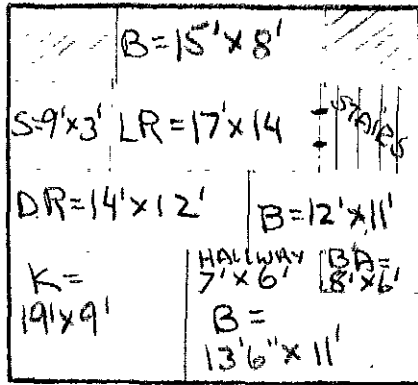 B=15'x8'
S=9'x3' LR=17'x14 STAIRS
DR=14'x12' B=12'x11'
K=
19'x9'
HALLWAY
7'x6'
BA=
8'x6'
B=
13'6"x11'